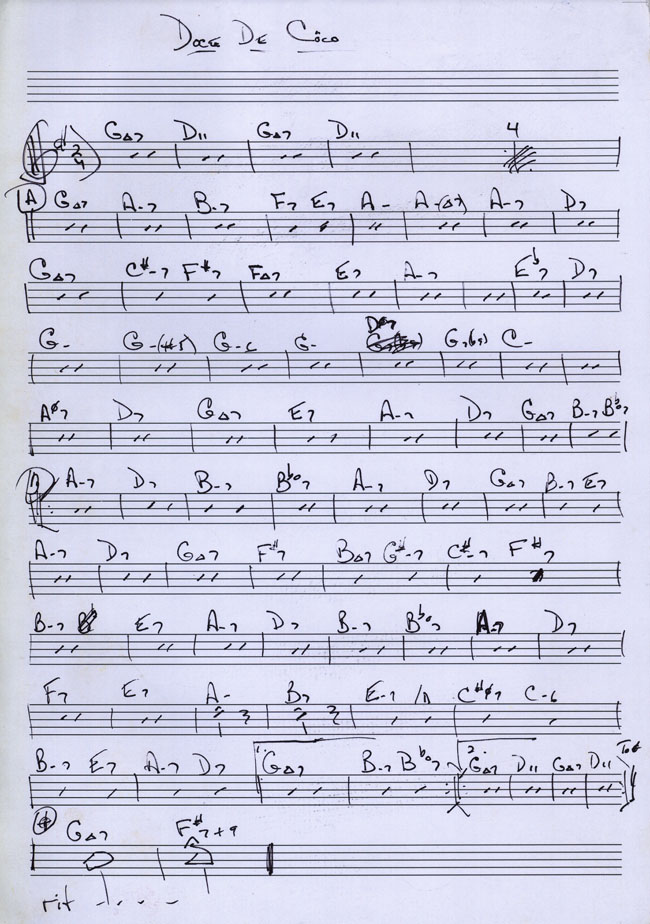 Doce De Côco
2/4 G△7 D11 G△7 D11 4
A G△7 A-7 B-7 F7 E7 A- A-(△7) A-7 D7
G△7 C#-7 F#7 F△7 E7 A-7 Eb7 D7
G- G-(#5) G-6 G- G7(b9) C-
Aø7 D7 G△7 E7 A-7 D7 G△7 B-7 Bbo7
A-7 D7 B-7 Bbo7 A-7 D7 G△7 B-7 E7
A-7 D7 G△7 F#7 B△7 G#-7 C#-7 F#7
B-7 E7 A-7 D7 B-7 Bbo7 A-7 D7
F7 E7 A- B7 E-7 /D C#ø7 C-6
B-7 E7 A-7 D7 1. G△7 B-7 Bbo7 2. G△7 D11 G△7 D11
G△7 F#7+9
rit - - - -